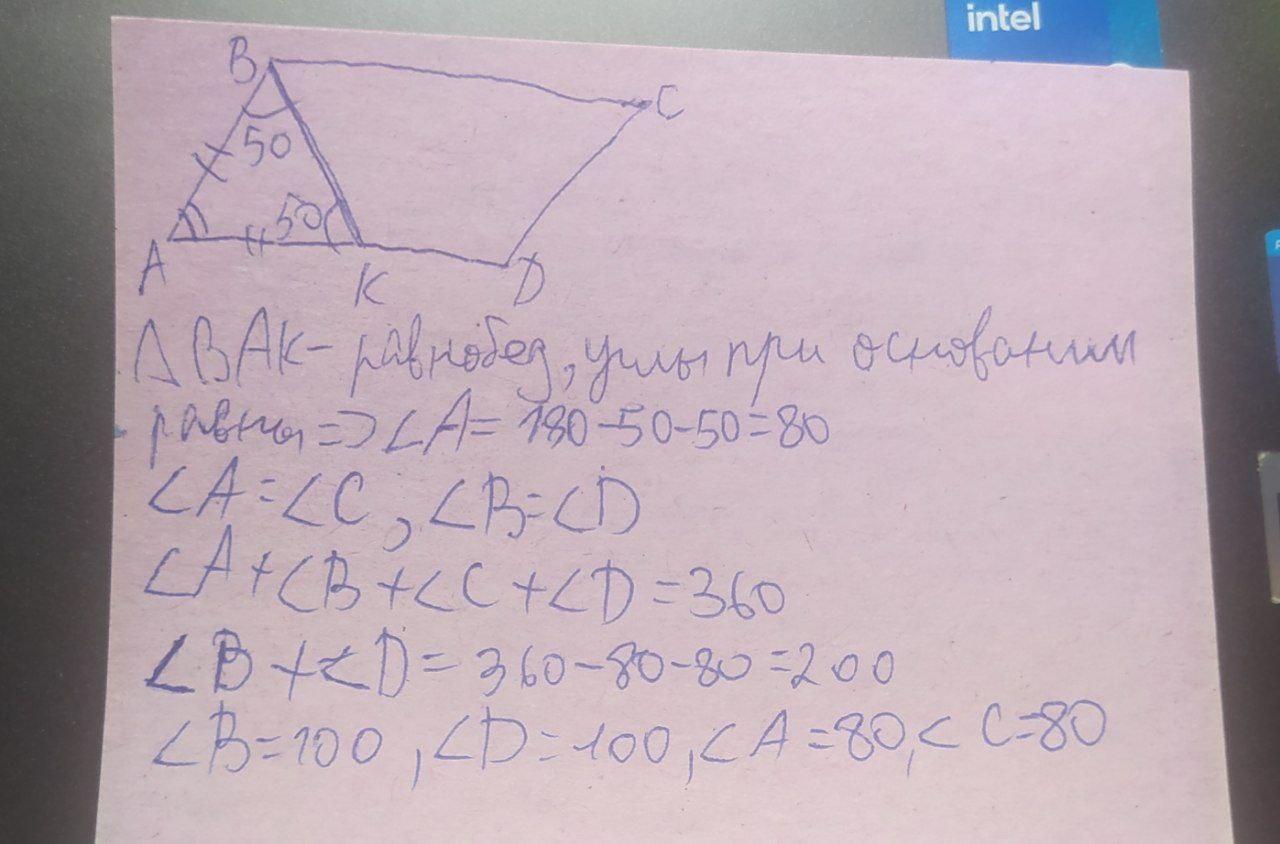 intel
B
C
50
50
A
K
D
Δ BAK - равнобед, углы при основании
равны => ∠A = 180-50-50=80
∠A=∠C, ∠B=∠D
∠A+∠B+∠C+∠D=360
∠B+∠D=360-80-80=200
∠B=100, ∠D=100, ∠A=80, ∠C=80